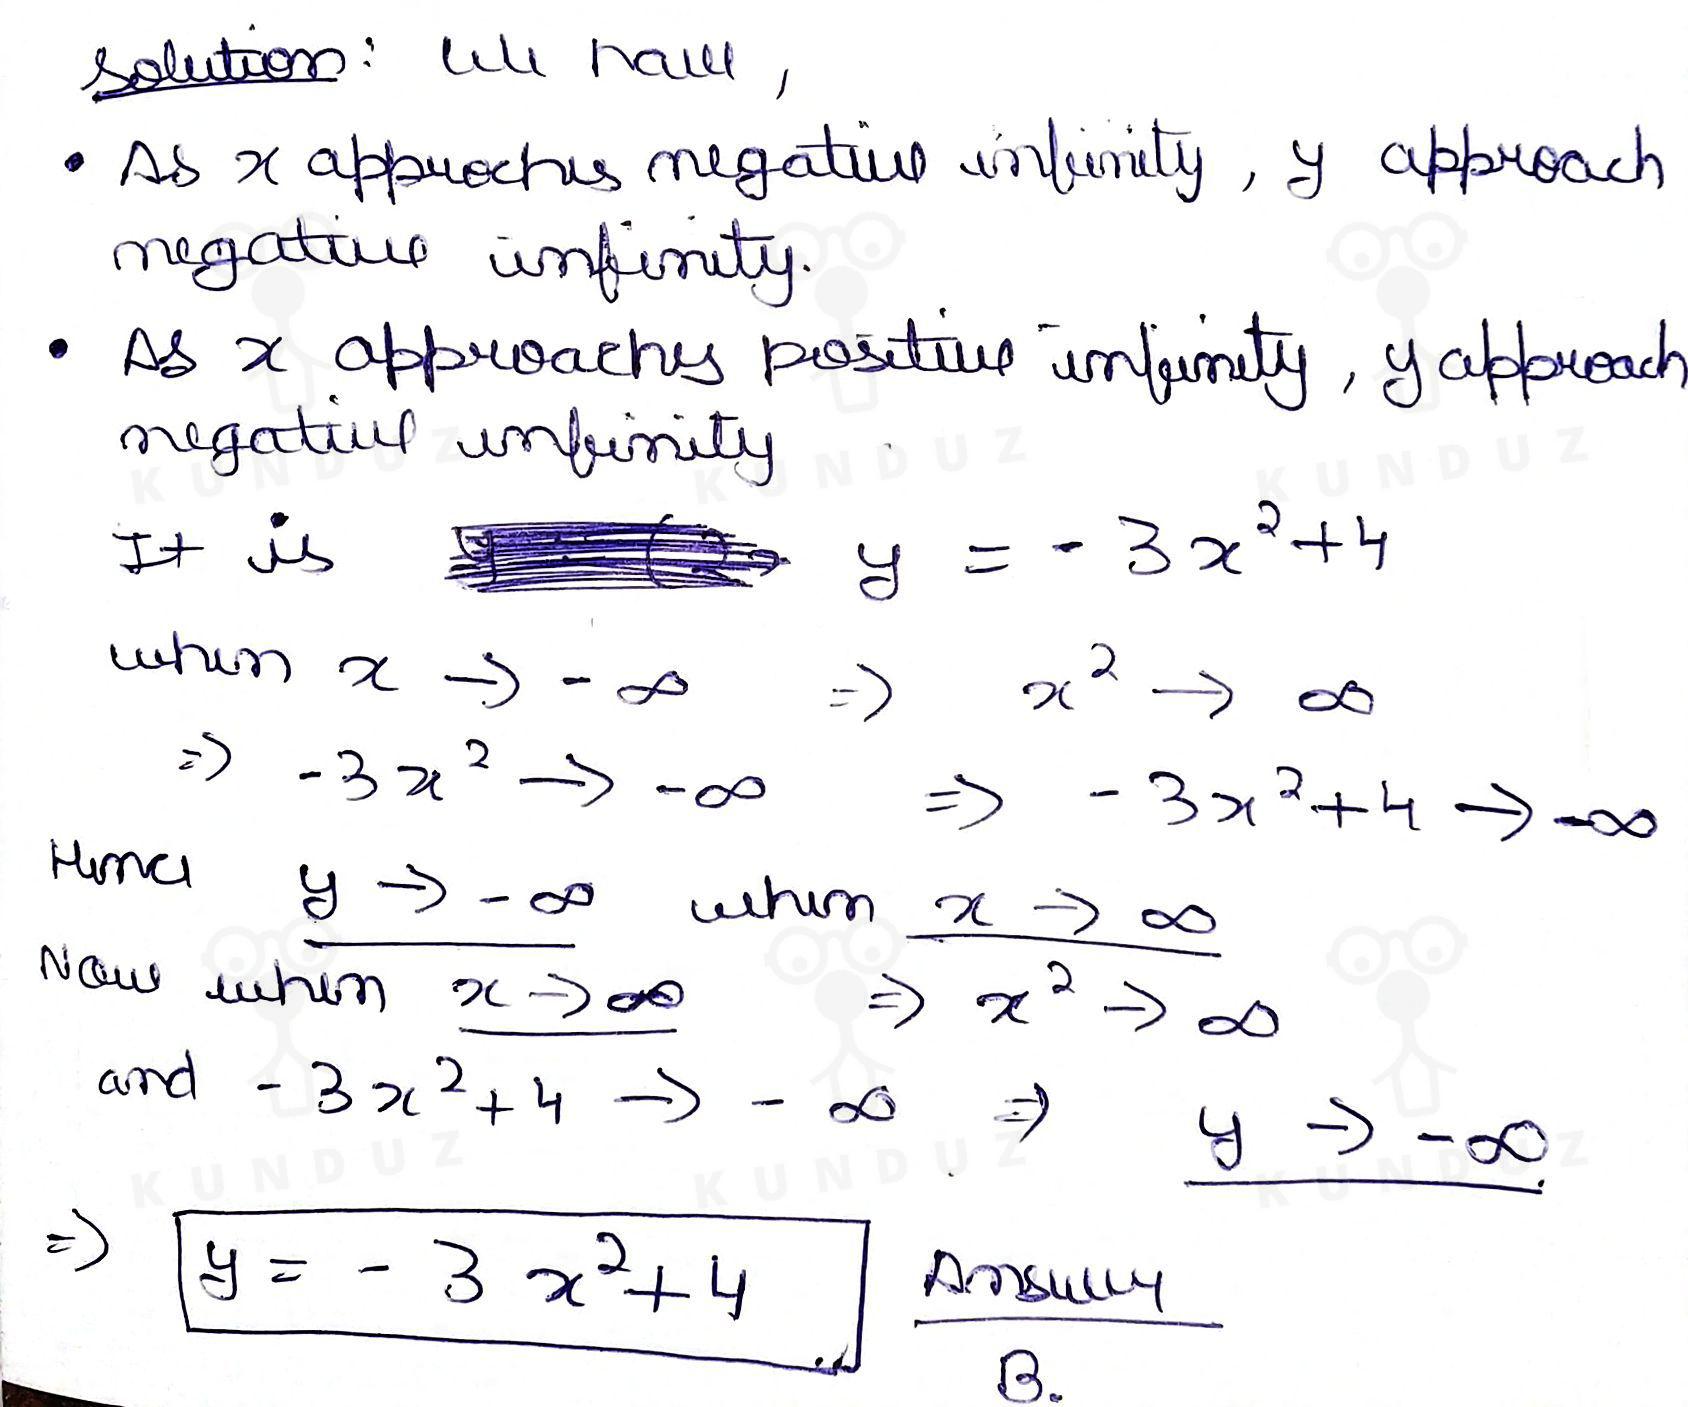 Solution: We have,
• As x approches negative infinity, y approach
negative infinity.
• As x approaches positive infinity, y approach
negative infinity
It is y = -3x²+4
when x → -∞ ⇒ x² → ∞
⇒ -3x² → -∞ ⇒ -3x²+4 → -∞
Hence y → -∞ when x → ∞
Now when x → ∞ ⇒ x² → ∞
and -3x²+4 → -∞ ⇒ y → -∞.
⇒ y = -3x²+4 Answer
B.
KUNDUZ KUNDUZ KUNDUZ
KUNDUZ KUNDUZ KUNDUZ